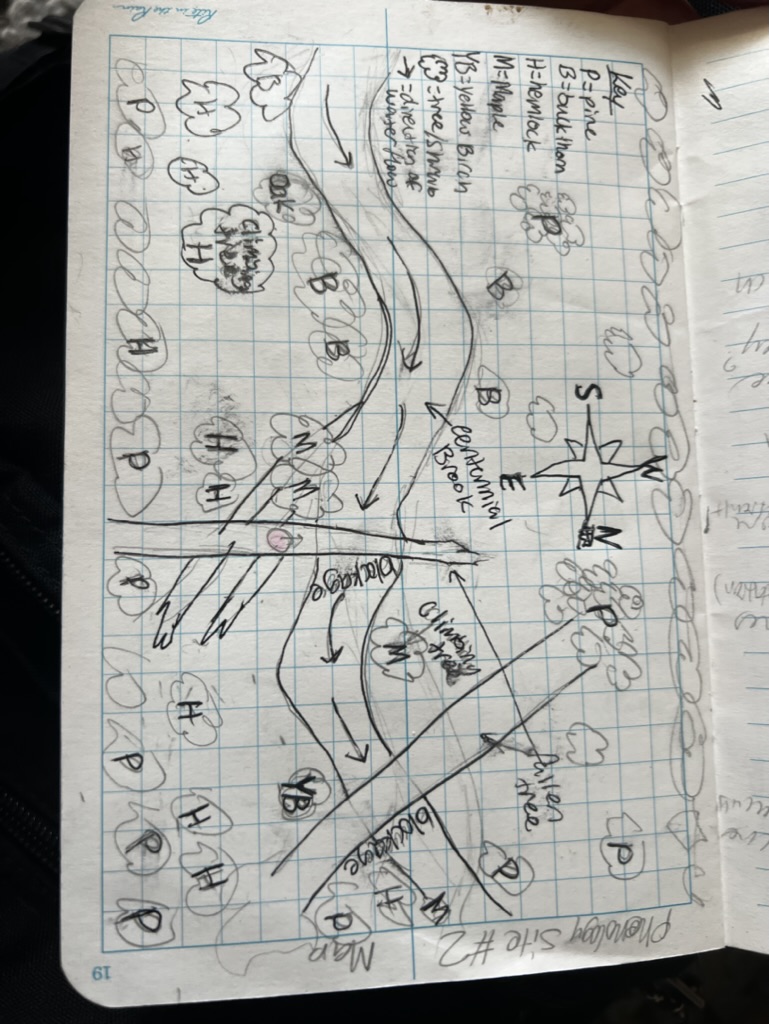 Rite in the Rain
Phenology Site #2
Map
Key
P=pine
B=buckthorn
H=hemlock
M=Maple
YB=yellow Birch
=tree/shrub
→=direction of
water flow
P
B
B
S
W
E
N
centennial
Brook
P
P
fallen
tree
P
climbing
tree
M
blockage
blockage
M
H
P
B
oak
B
B
M
M
YB
H
H
climbing
tree
H
H
H
H
H
H
P
H
H
P
P
P
P
P
19